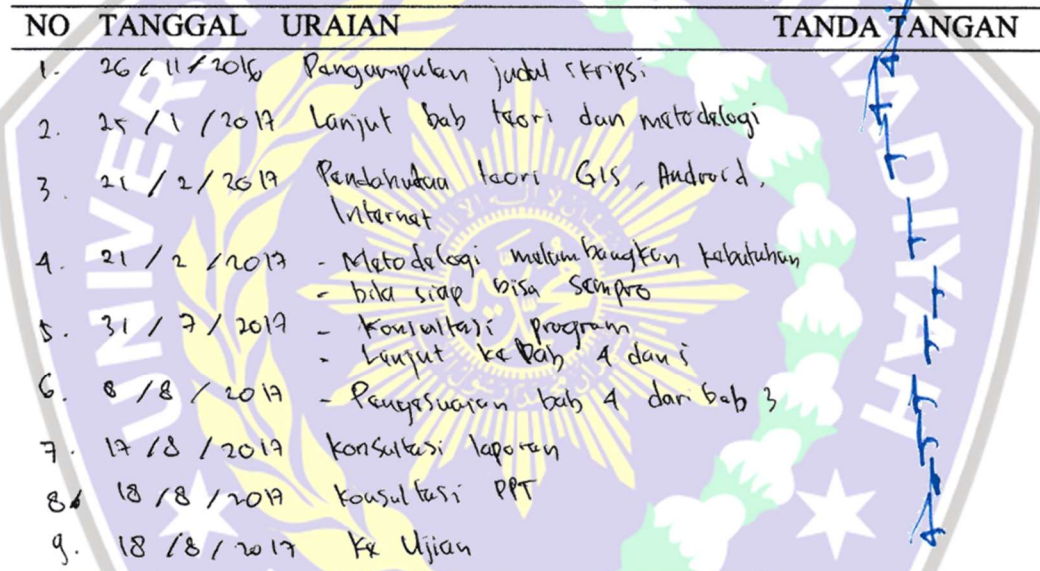 NO TANGGAL URAIAN TANDA TANGAN
1. 26 / 11 / 2016 Pengumpulan judul skripsi
2. 25 / 1 / 2017 Lanjut bab teori dan metodelogi
3. 21 / 2 / 2017 teori GIS, Android,
Internet
4. 21 / 2 / 2017 - Metodelogi kebutuhan
- bila siap bisa sempro
5. 31 / 7 / 2017 - Konsultasi program
- Lanjut ke bab 4 dan 5
6. 8 / 8 / 2017 - Penyesuaian bab 4 dari bab 3
7. 17 / 8 / 2017 konsultasi laporan
8. 18 / 8 / 2017 konsultasi PPT
9. 18 / 8 / 2017 Ke Ujian
UNIVER
MADIYAH